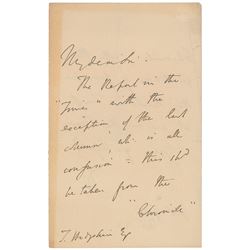 My dear Sir.
The Report in the
"Times" with the
exception of the last
column wh. is all
confusion = this shd
be taken from the
"Chronicle"
T. Hodgskin Esq